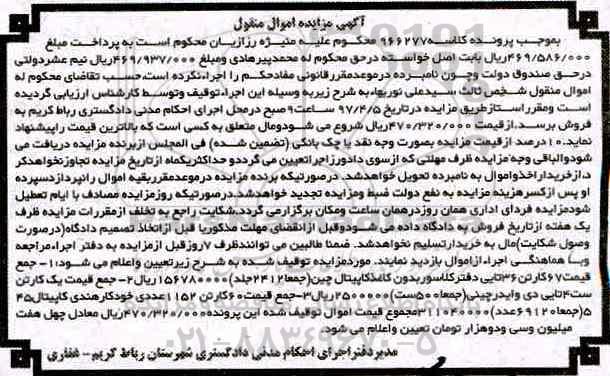 آگهی مزایده اموال منقول
بموجب پرونده کلاسه ۹۶۶۲۷۷ محکوم علیه منیژه رزازیان محکوم است به پرداخت مبلغ
۴۶۹/۵۸۶/۰۰۰ریال بابت اصل خواسته درحق محکوم له محمدپیرهادی ومبلغ ۴۶۹/۹۳۷/۰۰۰ریال نیم عشردولتی
درحق صندوق دولت وچون نامبرده درموعدمقررقانونی مفادحکم را اجراءنکرده است،حسب تقاضای محکوم له
اموال منقول شخص ثالث سیدعلی نوربها،به شرح زیربه وسیله این اجراء،توقیف وتوسط کارشناس ارزیابی گردیده
است ومقرراستازطریق مزایده درتاریخ ۹۷/۴/۵ ساعت۹صبح درمحل اجرای احکام مدنی دادگستری رباط کریم به
فروش برسد.ازقیمت ۴۷۰/۳۲۰/۰۰۰ریال شروع می شودومال متعلق به کسی است که بالاترین قیمت راپیشنهاد
نماید.۱۰درصد ازقیمت مزایده بصورت وجه نقد یا چک بانکی (تضمین شده) فی المجلس ازبرنده مزایده دریافت می
شودوالباقی وجه مزایده ظرف مهلتی که ازسوی دادورزاجراتعیین می گرددو حداکثریکماه ازتاریخ مزایده تجاوزنخواهدکر
د،ازخریداراخذواموال به نامبرده تحویل خواهدشد. درصورتیکه برنده مزایده درموعدمقرربقیه اموال رانپردازدسپرده
او پس ازکسرهزینه مزایده به نفع دولت ضبط ومزایده تجدید خواهدشد.درصورتیکه روزمزایده مصادف با ایام تعطیل
شودمزایده فردای اداری همان روزدرهمان ساعت ومکان برگزارمی گردد.شکایت راجع به تخلف ازمقررات مزایده ظرف
یک هفته ازتاریخ فروش به دادگاه داده می شودوقبل ازانقضای مهلت مذکوریا قبل ازاتخاذ تصمیم دادگاه(درصورت
وصول شکایت)مال به خریدارتسلیم نخواهدشد. ضمنا طالبین می توانندظرف ۷روزقبل ازمزایده به دفتر اجراء،مراجعه
وبا هماهنگی اجراءازاموال بازدید نمایند. موردمزایده توقیف شده به شرح زیرتعیین واعلام می شود:۱- جمع
قیمت۶۷کارتن۳۶تایی دفترکلاسوربدون کاغذکاپیتال چین(جمعا۲۴۱۲جلد)۱۵۶۷۸۰۰۰۰ریال۲-جمع قیمت یک کارتن
ست۴تایی دی وایدرچینی(جمعا۵۰۰ست)۲۵۰۰۰۰۰ریال۳-جمع قیمت۶۰کارتن ۱۱۵۲عددی خودکارهندی کاپیتال۴۵
۵(جمعا۶۹۱۲۰عدد)۳۱۱۰۴۰۰۰۰مجموع قیمت اموال توقیف شده این پرونده۴۷۰/۳۲۰/۰۰۰ریال معادل چهل هفت
میلیون وسی ودوهزار تومان تعیین واعلام می شود.
مدیردفتراجرای احکام مدنی دادگستری شهرستان رباط کریم - غفاری
۰۲۱-۸۸۳۴۹۶۷۰-۵